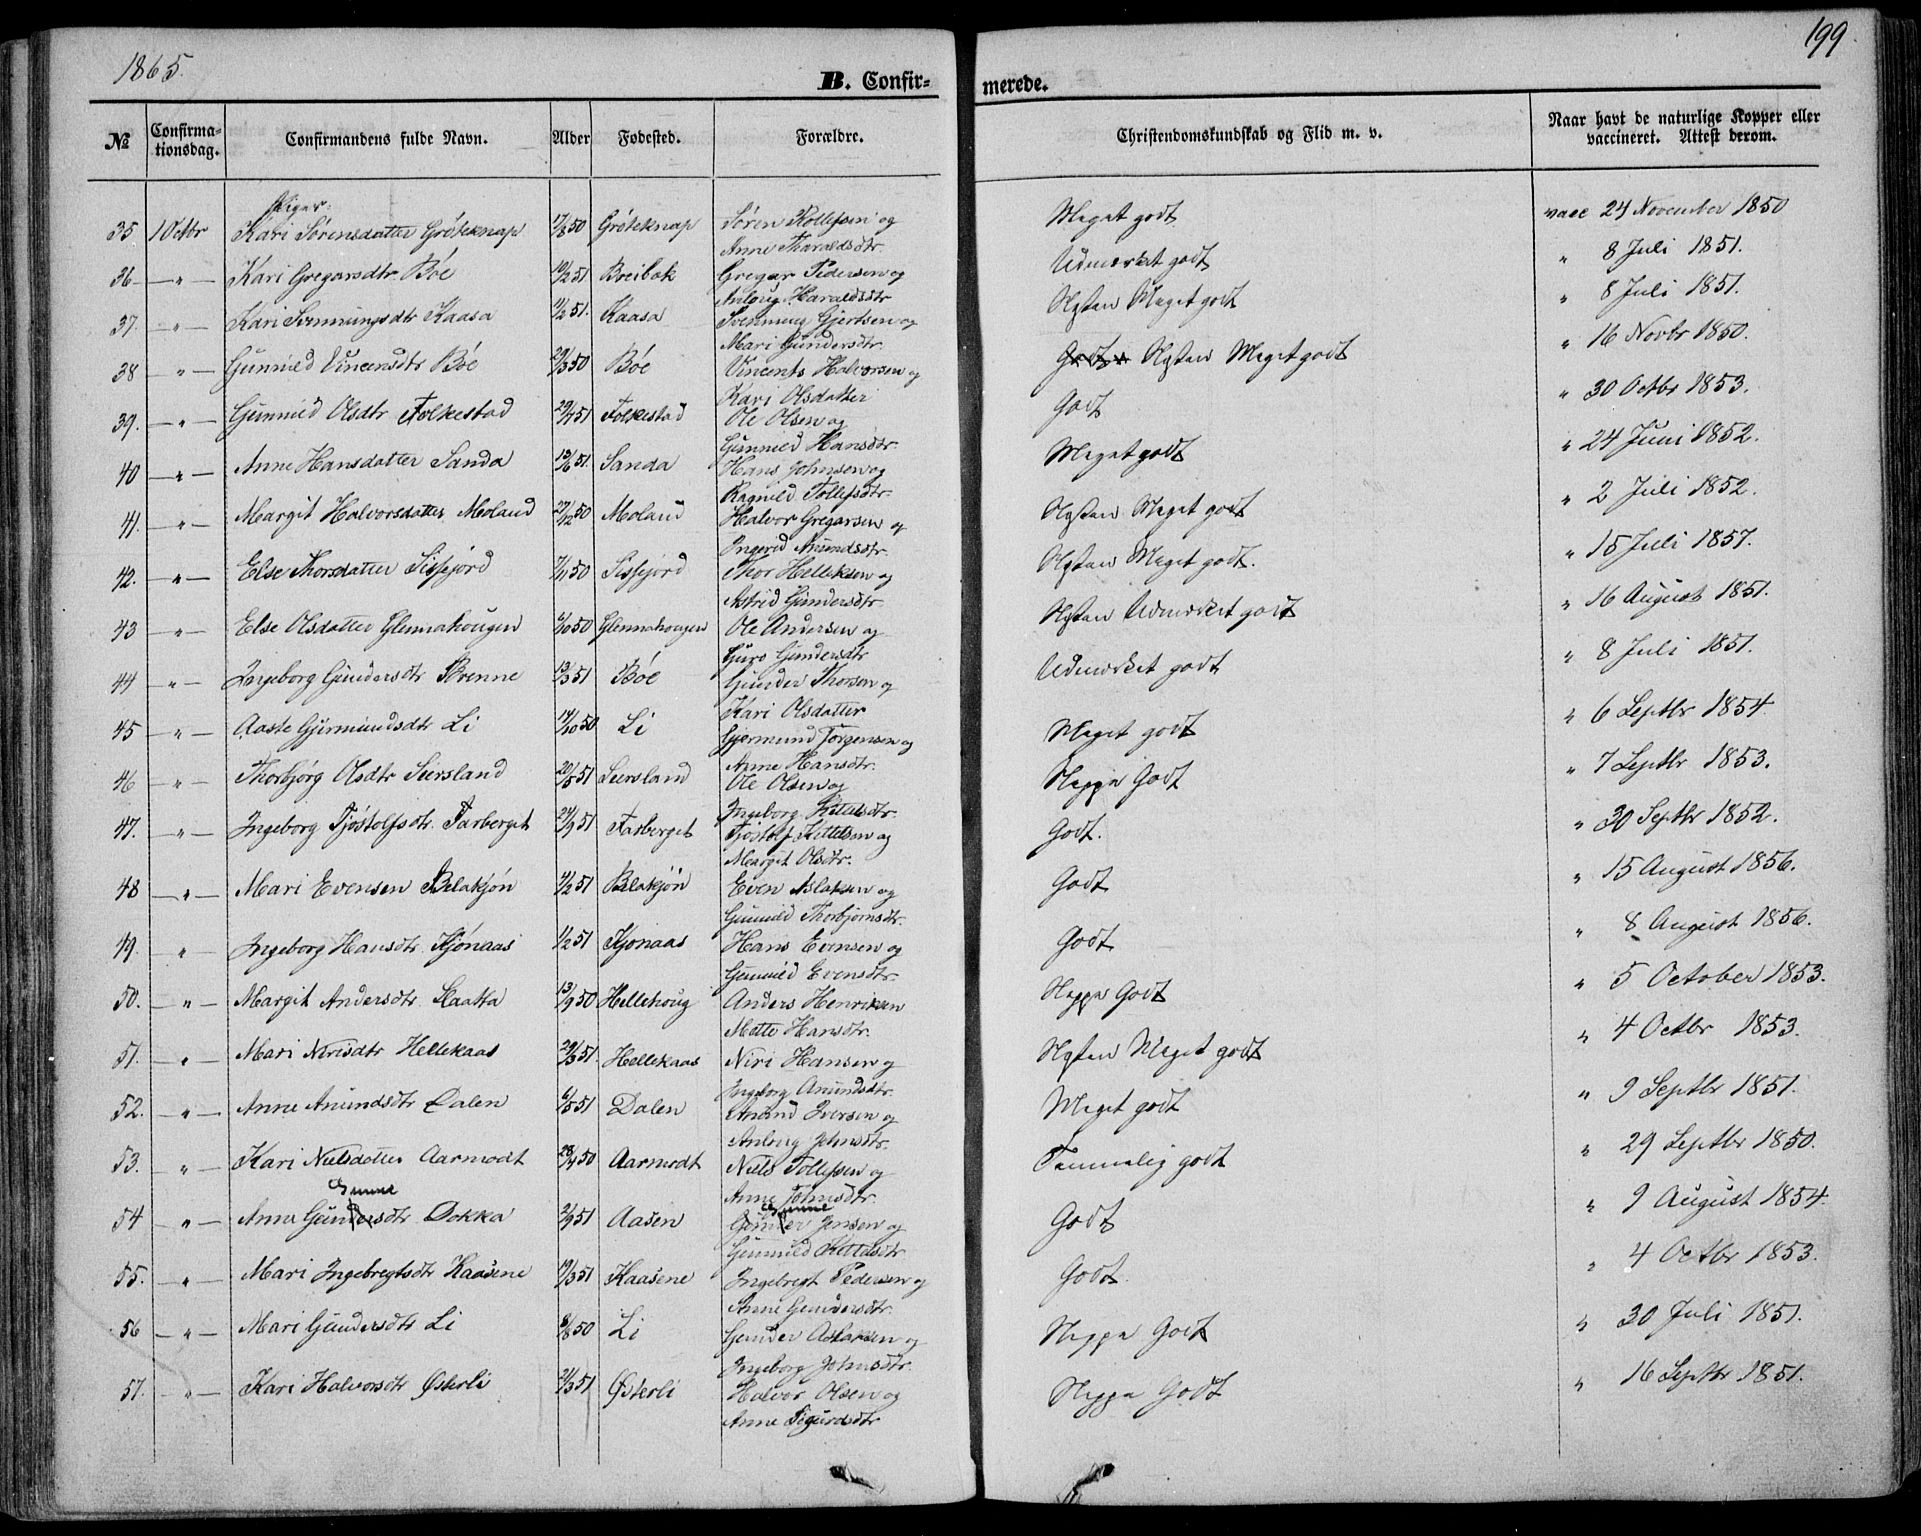 1865.
199
B. Confir-
merede.
№
Confirma-
tionsdag.
Confirmandens fulde Navn.
Alder
Fødested.
Forældre.
Christendomskundskab og Flid m. v.
Naar havt de naturlige Kopper eller
vaccineret. Attest derom.
Piger.
35 1 Octbr Kari Sørensdatter Gröteknap 17/8 50 Gröteknap Søren Tollefsen og Meget godt vacc 24 November 1850
Anne Haraldsdtr.
36 —"— Kari Gregarsdtr Böe 19/2 51 Breibak Gregar Pedersen og Udmærket godt " 8 Juli 1851.
Anloug Haraldsdtr
37. —"— Kari Svennungsdtr Kaasa 11/2 51. Kaasa Svennung Gjertsen og Næsten Meget godt " 8 Juli 1851.
Mari Gundersdtr.
38 —"— Gunnild Vincensdtr Böe 29/3 50 Böe Vincents Halvorsen og Næsten Meget godt " 16 Novbr 1850.
Kari Olsdatter
39. —"— Gunnild Olsdtr Folkestad 29/4 51 Folkestad Ole Olsen og Godt " 30 Octbr 1853.
Gunnild Hansdtr.
40 —"— Anne Hansdatter Sanda 13/6 51. Sanda Hans Johnsen og Meget godt " 24 Juni 1852.
Ragnild Tollefsdtr.
41. —"— Margit Halvorsdatter Moland 27/12 50 Moland Halvor Gregarsen og Næsten Meget godt " 2 Juli 1852.
Ingerid Amundsdtr.
42. —"— Else Thorsdatter Sisjord 7/11 50 Sisjord Thor Helleksen og Næsten Meget godt. " 15 Juli 1857.
Astrid Gundersdtr.
43 —"— Else Olsdatter Glennahougen 6/10 50 Glennahougen Ole Andersen og Næsten Udmærket godt " 16 August 1851.
Guro Gundersdtr
44 —"— Ingeborg Gundersdtr Brenne 13/3 51 Böe Gunder Thorsen og Udmærket godt " 8 Juli 1851.
Kari Olsdatter
45 —"— Aaste Gjermundsdtr Li 14/10 50 Li Gjermund Torgersen og Meget godt " 6 Septbr 1854.
Anne Hansdtr.
46 —"— Thorbjörg Olsdtr Seersland 20/5 51 Seersland Ole Olsen og Neppe Godt " 7 Septbr 1853.
Ingeborg Kittelsdtr.
47. —"— Ingeborg Tjöstolfsdtr. Farberget 24/9 51 Farberget Tjöstolf Kittelsen og Godt. " 30 Septbr 1852.
Margit Olsdtr.
48 —"— Mari Evensen Bilakjøn 4/2 51 Bilakjøn Even Aslaksen og Godt " 15 August 1856.
Gunnild Thorbjørnsdtr.
49. —"— Ingeborg Hansdtr. Kjönaas 1/2 51 Kjonaas Hans Evensen og Godt " 8 August 1856.
Gunnild Evensdtr.
50. —"— Margit Andersdtr Slaatta 13/9 50 Hellehoug Anders Henriksen Neppe Godt " 5 October 1853.
Mette Hansdtr.
51. —"— Mari Nirisdtr Hellekaas 29/3 51. Hellekaas Niri Hansen og Næsten Meget godt " 4 Octbr 1853.
Ingeborg Anundsdtr.
52. —"— Anne Anundsdtr Dalen 6/5 51 Dalen Anund Iversen og Meget godt " 9 Septbr 1851.
Anloug Johnsdtr.
53. —"— Kari Nielsdatter Aarmodt 28/4 50 Aarmodt Niels Tollefsen og Temmelig godt " 29 Septbr 1850.
Anne Johnsdtr.
54 —"— Anne Gundersdtr Dokka 2/9 51 Aasen Gunder Jensen og Godt " 9 August 1854.
Gunnild Kittilsdtr
55. —"— Mari Ingebregtsdtr Kaasene 19/3 51 Kaasene Ingebregt Pedersen og Godt. " 4 Octbr 1853.
Anne Gundersdtr.
56 —"— Mari Gundersdtr Li 8/8 50 Li Gunder Aslaksen og Neppe Godt " 30 Juli 1851.
Ingeborg Johnsdtr.
57. —"— Kari Halvorsdtr Østerli 21/3 51 Østerli Halvor Olsen og Neppe Godt " 16 Septbr 1851.
Anne Sigurdsdtr